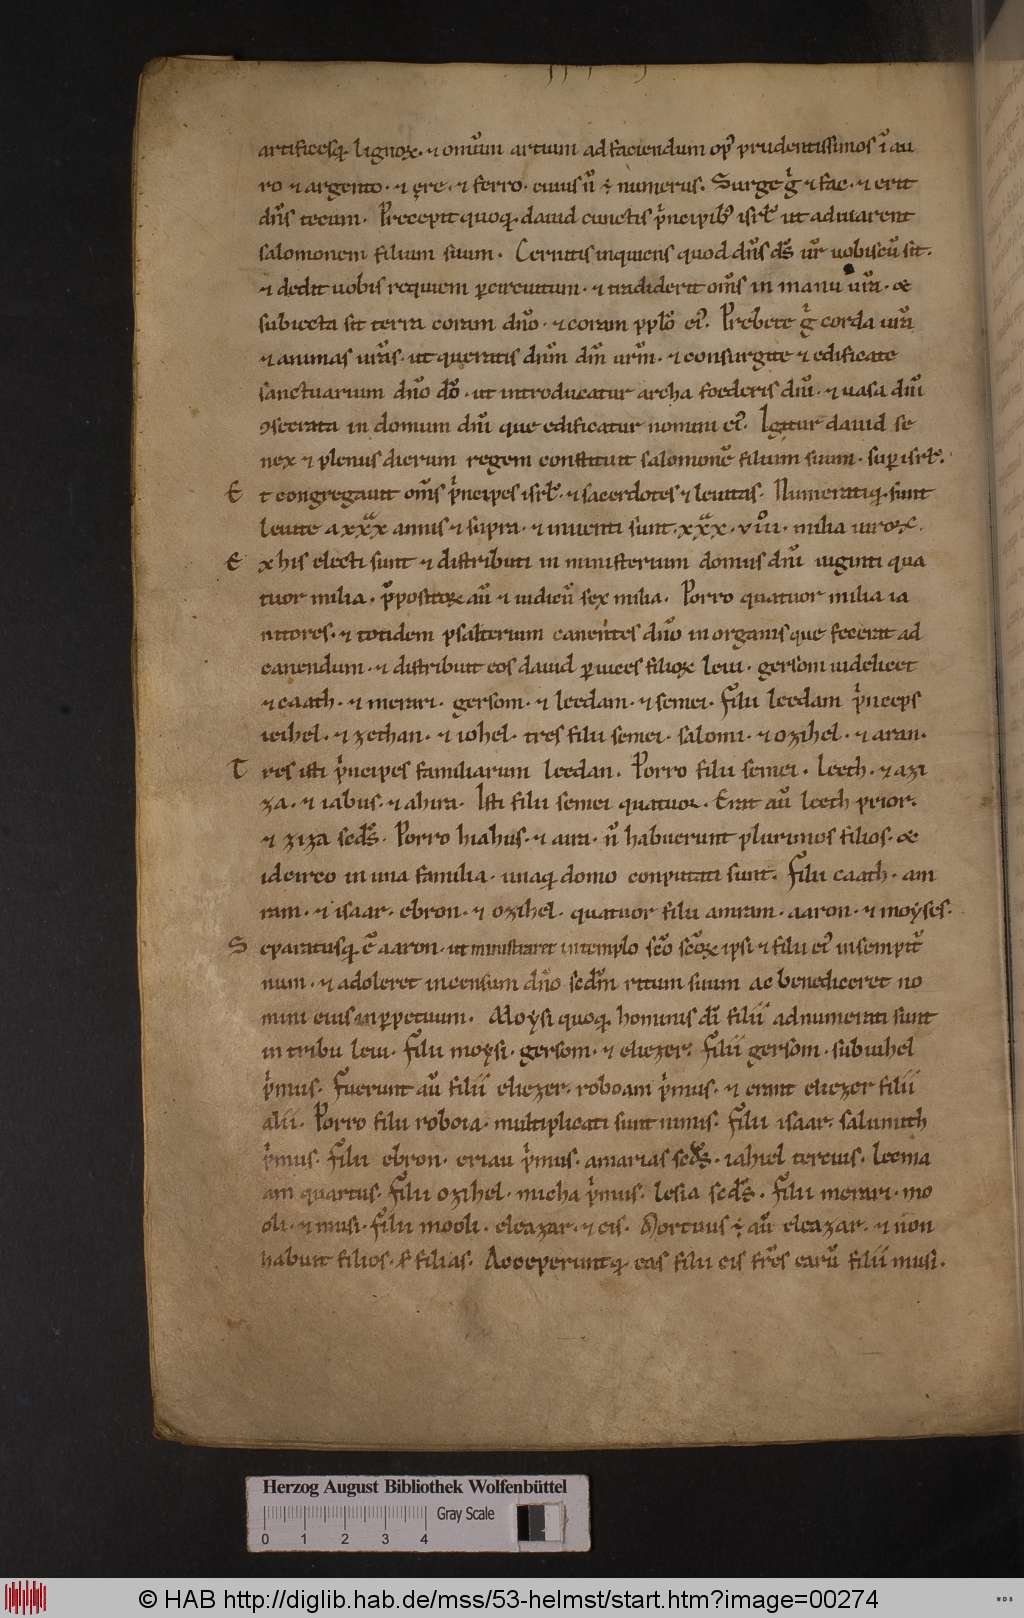 artificesq; lignoꝝ. ⁊ om̄ium artium ad faciendum op᷒ prudentissimos ī au
ro ⁊ argento. ⁊ ęre. ⁊ ferro. cuius n̄ ē numerus. Surge g̊ ⁊ fac. ⁊ erit
dn̄s tecum. Precepit quoq; dauid cunctis pͥncipib; isrł ut adiuuarent
salomonem filium suum. Cernitis inquiens quod dn̄s ds̄ ur̄ uobiscū sit.
⁊ dedit uobis requiem ꝑ circuitum. ⁊ tradiderit om̄s in manu ur̄a. &
subiecta sit terra coram dn̄o. ⁊ coram pplo̅ ei᷒. Prebete g̊ corda ur̄a
⁊ animas ur̄as. ut queratis dnm̄ dm̄ urm̄. ⁊ consurgite ⁊ edificate
sanctuarium dn̄o dō. ut introducatur archa foederis dn̄i. ⁊ uasa dn̄i
ꝯsecrata in domum dn̄i que edificatur nomini ei᷒. Igitur dauid se
nex ⁊ plenus dierum regem constituit salomonē filium suum. suꝑ isrł.
E t congregauit om̄s pͥncipes isrł. ⁊ sacerdotes ⁊ leuitas. Numeratiq; sunt
leuite a xxx annis ⁊ supra. ⁊ inuenti sunt. xxx. viii. milia uiroꝝ.
E x his electi sunt ⁊ distributi in ministerium domus dn̄i uiginti qua
tuor milia. p̄positoꝝ aū ⁊ iudicū sex milia. Porro quatuor milia ia
nitores. ⁊ totidem psalterium canentes dn̄o in organis que fecerat ad
canendum. ⁊ distribuit eos dauid ꝑ uices filioꝝ leui. gersom uidelicet
⁊ caath. ⁊ merari. gersom. ⁊ leedam. ⁊ semei. Filii leedam pͥnceps
ieihel. ⁊ zethan. ⁊ iohel. tres filii semei. salomi. ⁊ ozihel. ⁊ aran.
T res isti pͥncipes familiarum leedan. Porro filii semei. leeth. ⁊ azi
za. ⁊ iabus. ⁊ ahira. Isti filii semei quatuor. Erat aū leeth prior.
⁊ ziza secds̄. Porro hiahus. ⁊ aira. n̄ habuerunt plurimos filios. &
idcirco in una familia. unaq; domo conputati sunt. Filii caath. am
ram. ⁊ isaar. ebron. ⁊ ozihel. quatuor filii amram. aaron. ⁊ moyses.
S eparatusq; ē aaron. ut ministraret in templo sc̄o sc̄oꝝ ipsi ⁊ filii ei᷒ in sempit̄
num. ⁊ adoleret incensum dn̄o secdm̄ ritum suum ac benediceret no
mini eius in ꝑpetuum. Moysi quoq; hominis dī filii adnumerati sunt
in tribu leui. Filii moysi. gersom. ⁊ eliezer. Filii gersom. subuihel
pͥmus. Fuerunt aū filii eliezer. roboam pͥmus. ⁊ erant eliezer filii
alii. Porro filii roboia. multiplicati sunt nimis. Filii isaar. salumith
pͥmus. Filii ebron. eriau pͥmus. amarias secds̄. iahiel tercius. leema
am quartus. Filii ozihel. micha pͥmus. lesia secds̄. Filii merari. mo
oli. ⁊ musi. Filii mooli. eleazar. ⁊ cis. Mortuus ē aū eleazar. ⁊ non
habuit filios. s; filias. Acceperuntq; eas filii cis fr̄es earū filii musi.
Herzog August Bibliothek Wolfenbüttel
Gray Scale
0 1 2 3 4
© HAB http://diglib.hab.de/mss/53-helmst/start.htm?image=00274